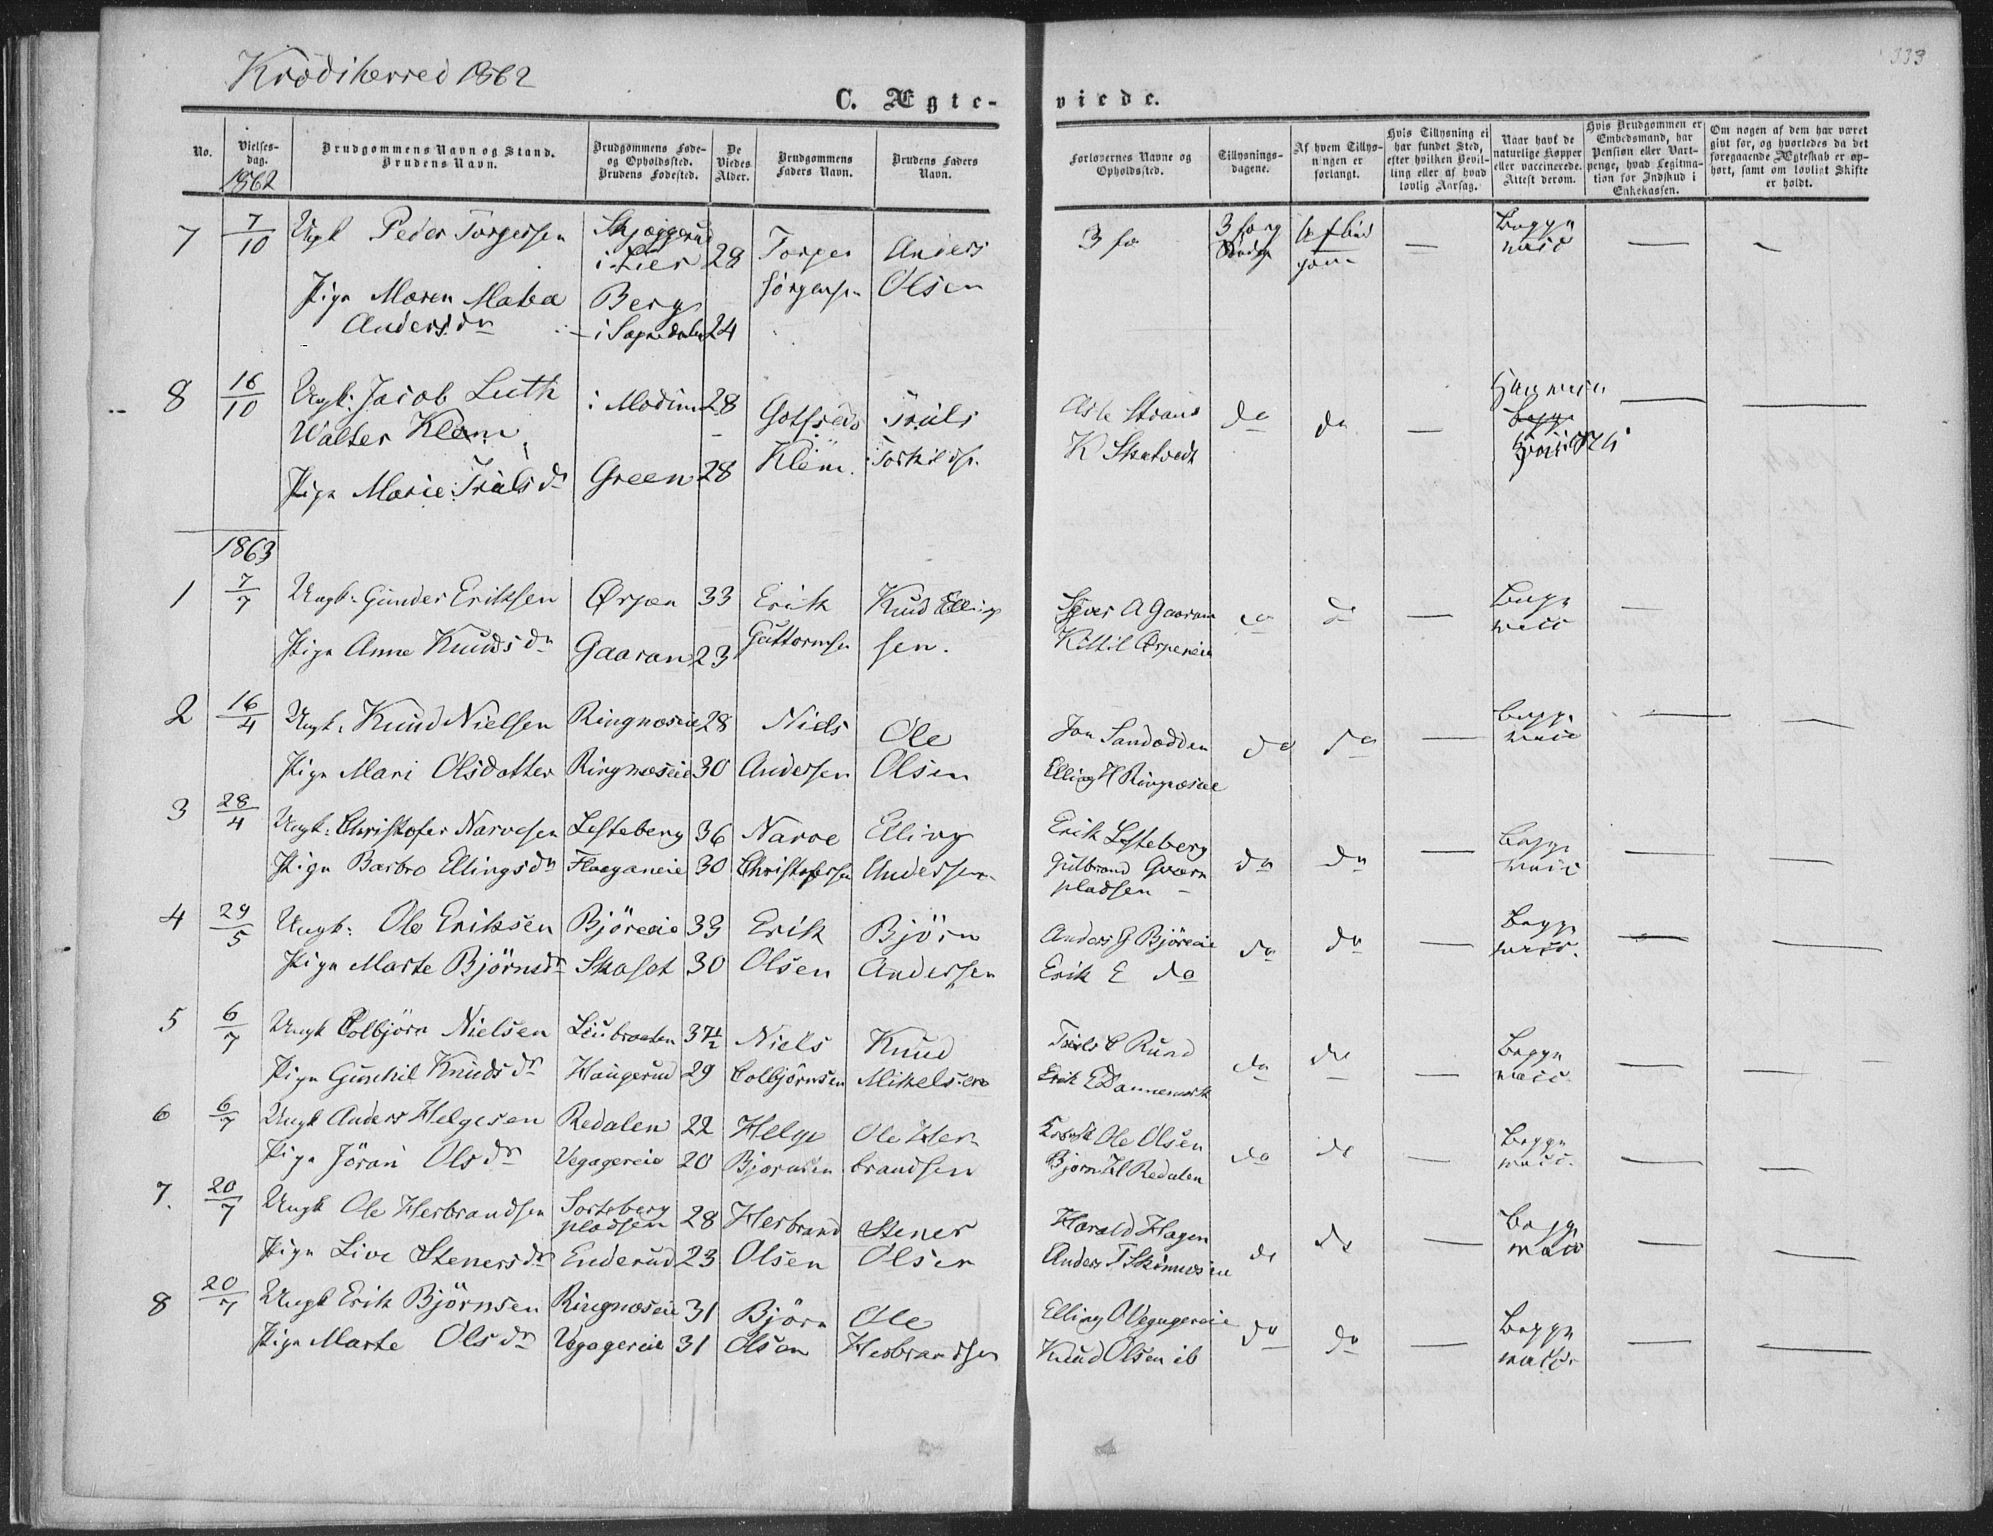 Krödiherred 1862
333
C. Ægte-
viede.
No.
Vielses-
dag.
1862
Brudgommens Navn og Stand.
Brudens Navn.
Brudgommens Føde-
og Opholdssted.
Brudens Fødested.
De
Viedes
Alder.
Brudgommens
Faders Navn.
Brudens Faders
Navn.
Forlovernes Navne og
Opholdssted.
Tillysnings-
dagene.
Af hvem Tillys-
ningen er
forlangt.
Hvis Tillysning ei
har fundet Sted,
efter hvilken Bevil-
ling eller af hvad
lovlig Aarsag.
Naar havt de
naturlige Kopper
eller vaccinerede.
Attest derom.
Hvis Brudgommen er
Embedsmand, har
Pension eller Vart-
penge, hvad Legitima-
tion for Indskud i
Enkekassen.
Om nogen af dem har været
gift før, og hvorledes da det
foregaaende Ægteskab er op-
hørt, samt om lovligt Skifte
er holdt.
7 7/10 Ungk Peder Torgersen Skjæggerud i Lier 28 Torger Jörgensen Anders Olsen
Pige Maren Mathea Andersdr Berg i Sognedalen 24
Begge vacc
8 16/10 Ungk: Jacob Luth Walter Klem i Modum 28 Gotfred Klem Truls Torkildsn
Pige Marie Trulsdr Green 28
Asle Straus K Skatvedt do do
1863
1 7/7 Ungk: Gunder Eriksen Ørpen 33 Erik Guttormsen Knud Elling
Pige Anne Knudsdr Gaaran 23 sen.
Syver A Gaaran Kittil Ørpeneie do do Begge vacc
2 16/4 Ungk. Knud Nielsen Ringnæseie 28 Niels Ole
Pige Mari Olsdatter Ringnæseie 30 Andersen Olsen
Jon Sandodden Elling H Ringnæseie do do Begge vacc
3 28/4 Ungk: Christofer Narvesen Lesteberg 36 Narve Elling
Pige Barbro Ellingsdr Flaaganeie 30 Christofersen Andersen
Erik Lesteberg Gulbrand Gværn pladsen do do Begge vacc
4 29/5 Ungk: Ole Eriksen Björeeie 33 Erik Björn
Pige Marte Björnsdr Skaset 30 Olsen Andersen
Anders G Björeeie Erik E do do do Begge vacc.
5 6/7 Ungk Colbjörn Nielsen Liubraaten 37½ Niels Knud
Pige Gunhil Knudsdr Haugerud 29 Colbjörnsen Mikelsen
Truls C Rund Erik E Dannemark do do Begge vacc.
6 6/7 Ungk Anders Helgesen Redalen 22 Helge Ole Her-
Pige Jöran Olsdr Vegagereie 20 Bjørnsen brandsen
Ole Olsen Bjørn H Redalen do do Begge vacc.
7. 20/7 Ungk Ole Herbrandsen Sorteberg pladsen 28 Herbrand Stener
Pige Live Stenersdr Enderud 23 Olsen Olsen
Harald Hagen Anders T do do Begge vacc
8 20/7 Ungk Erik Björnsen Ringnæseie 31 Björn Ole
Pige Marte Olsdr Vegagereie 31 Olsen Herbrandsen
Elling O Vegagereie Knud Olsen ib do do Begge vacc.